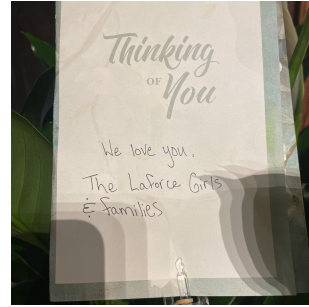 Thinking
OF
You
We love you,
The Laforce Girls
& families